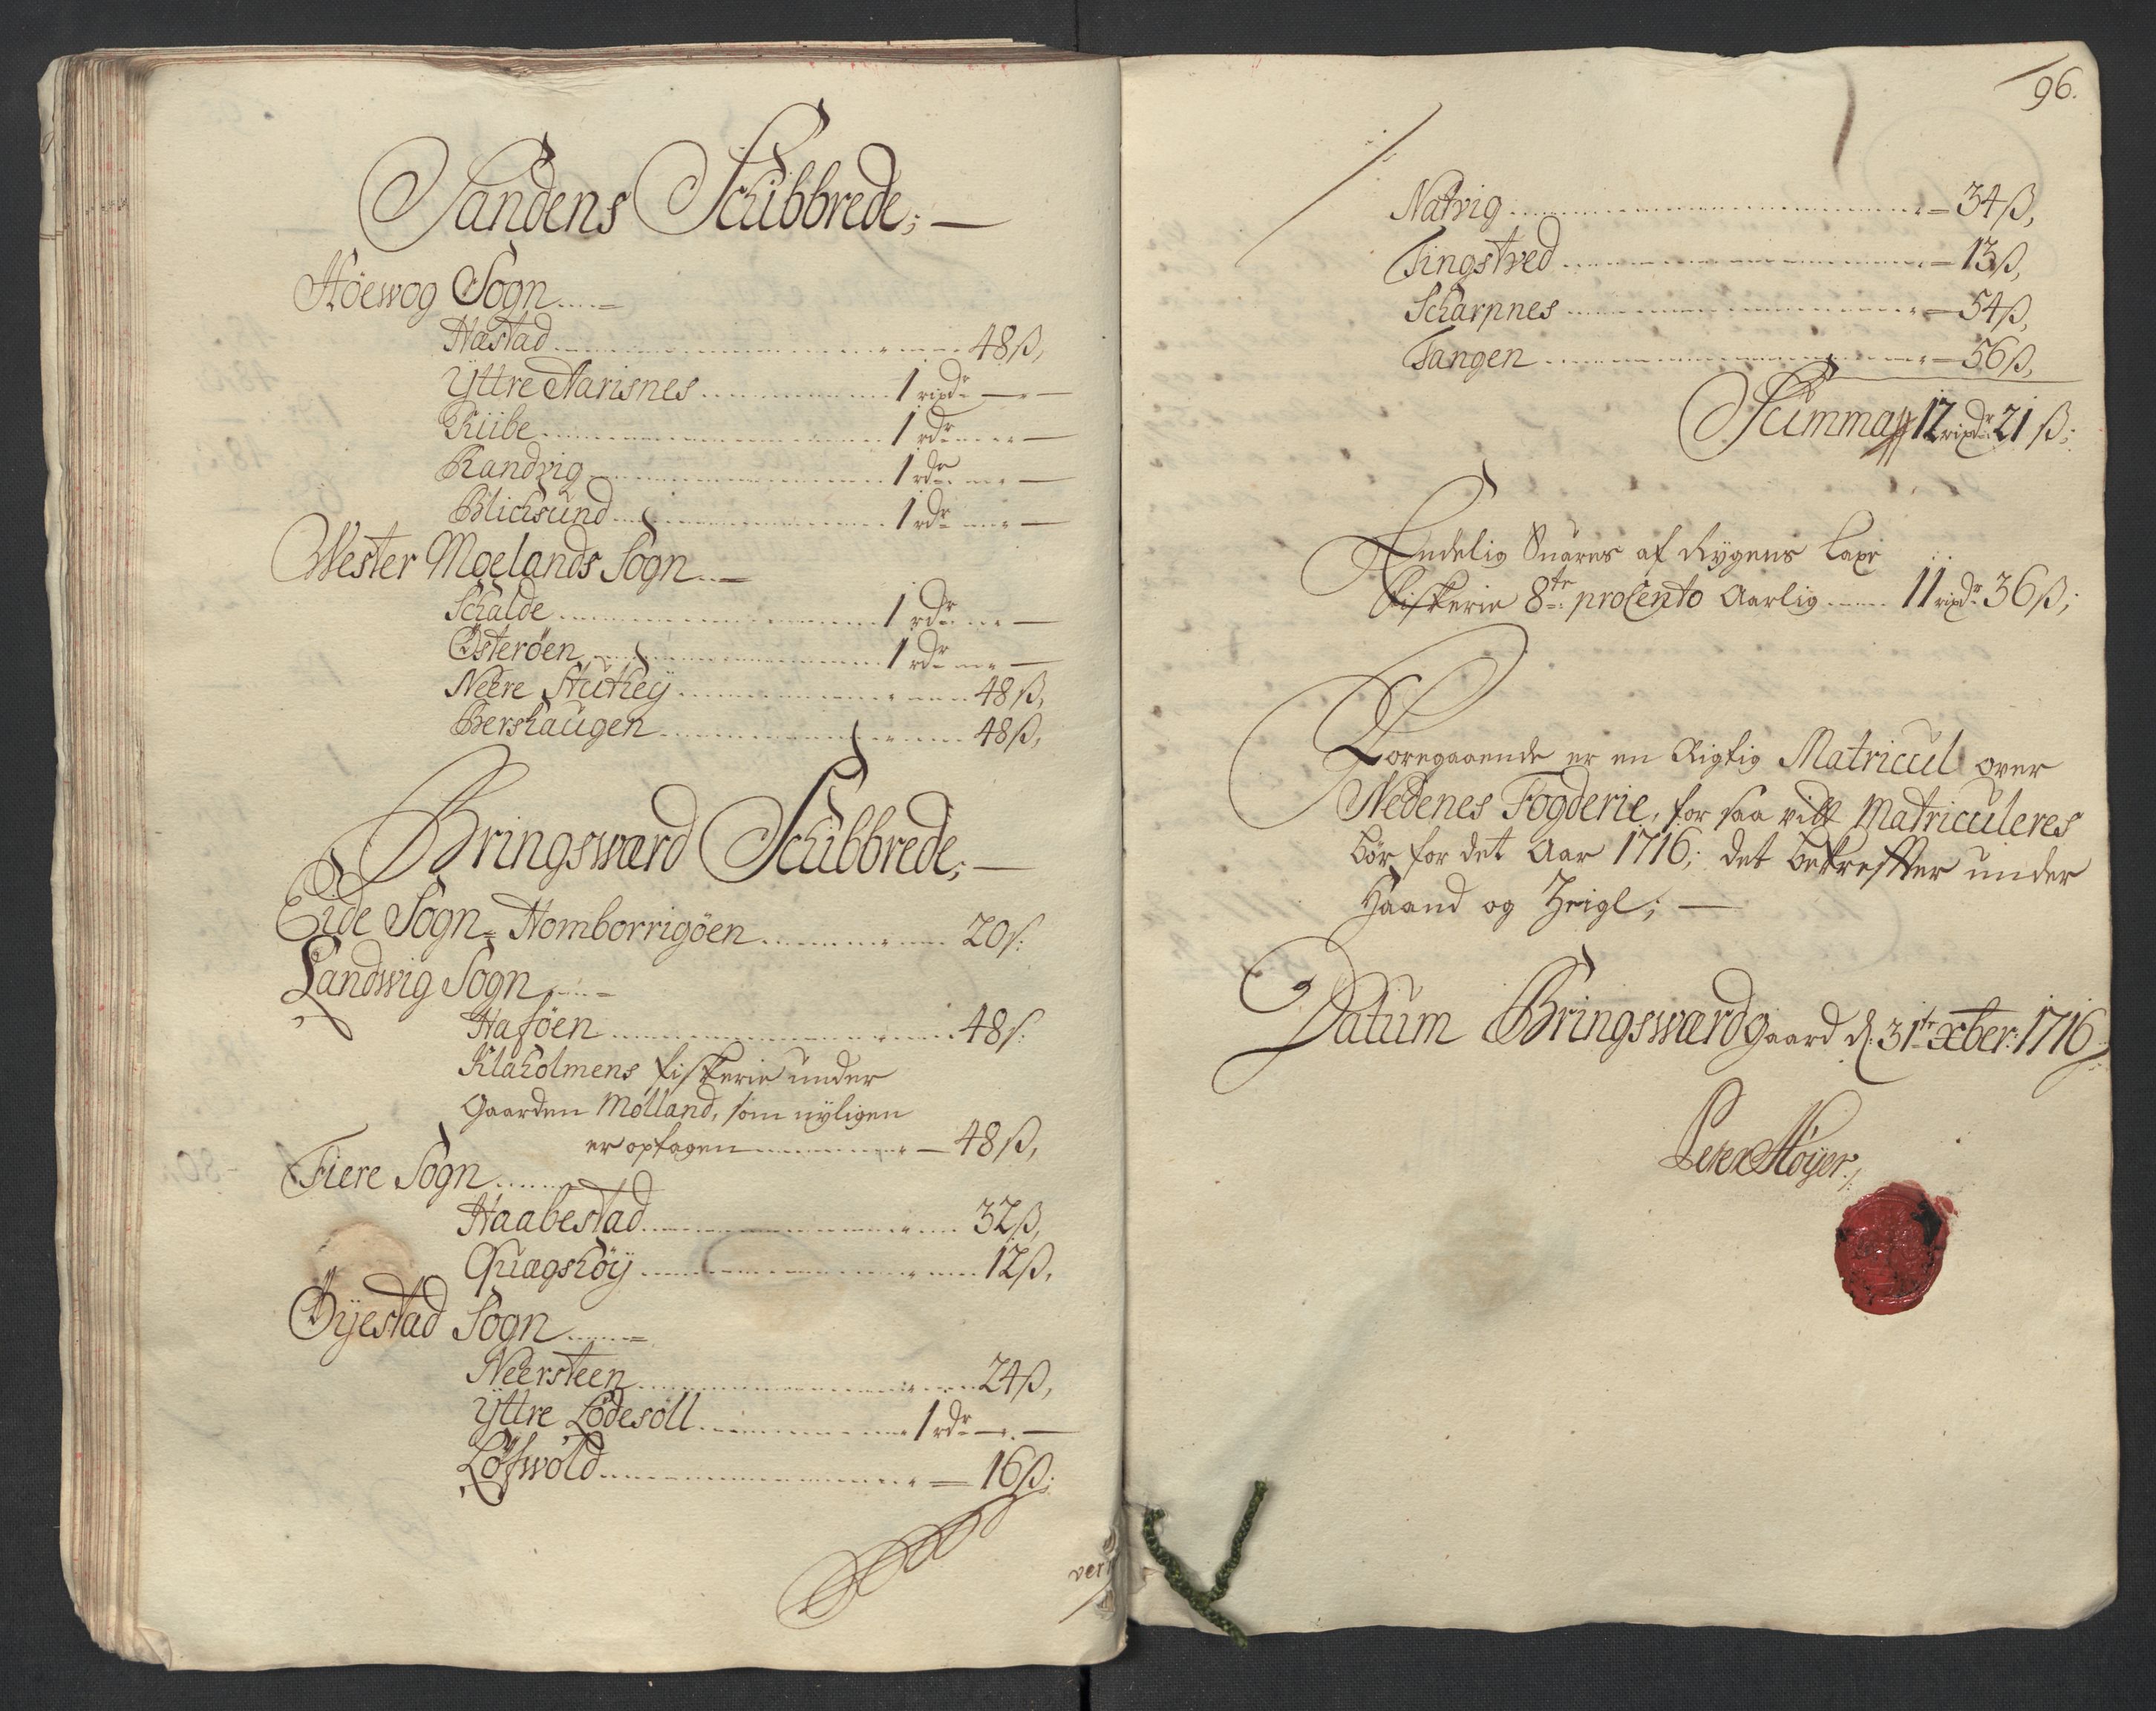 Sandens Schibbrede; —
Høewog Sogn
Hæstad 48 ß,
Yttre Aarisnes 1 rixdr —
Riibe 1 rdr —
Randvig 1 rdr —
Blichsund 1 rdr —
Wester Moelands Sogn
Schalde 1 rdr —
Østerøen 1 rdr —
Neere 48 ß,
Bershaugen 48 ß,
Bringsværd Schibbrede; —
Eide Sogn = Homborrigøen 20 ß:
Landwig Sogn
Haføen 48 ß:
Klaholmens fiskerie under
Gaarden Molland, som nyligen
er optagen — 48 ß,
Fiere Sogn
Haabestad 32 ß,
Qvægshøy 12 ß,
Øyestad Sogn
Neersteen 24 ß,
Yttre Lødesøll 1 rdr —
Løfwold 16 ß:
vert
96.
Natvig 34 ß,
Tingstved 13 ß,
Scharpnes 54 ß,
Tangen 56 ß,
Summa 12 rixdr 21 ß:
Endelig Suares af Rygens Laxe
fiskerie 8te pro Cento Aarlig 11 rixdr 36 ß;
Foregaaende er en Rigtig Matricul over
Nedenes Fogderie, for saa vitt Matriculeres
bør for det Aar 1716; det bekreffter under
Haand og Zeigl; —
Datum Bringsværd gaard d: 31te xber: 1716
Peter Høyer